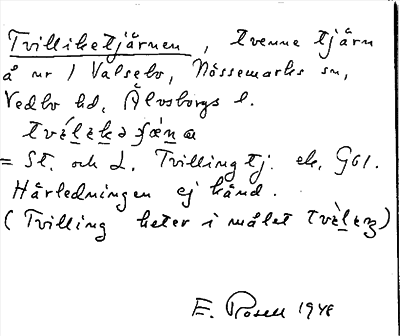 Tvilliketjärnen, tvenne tjärn
å nr 1 Valsebo, Nössemarks sn,
Vedbo hd, Älvsborgs l.
= St. och L. Tvillingtj. ek, G61.
Härledningen ej känd.
(Tvilling heter i målet
E. Rosell 1948